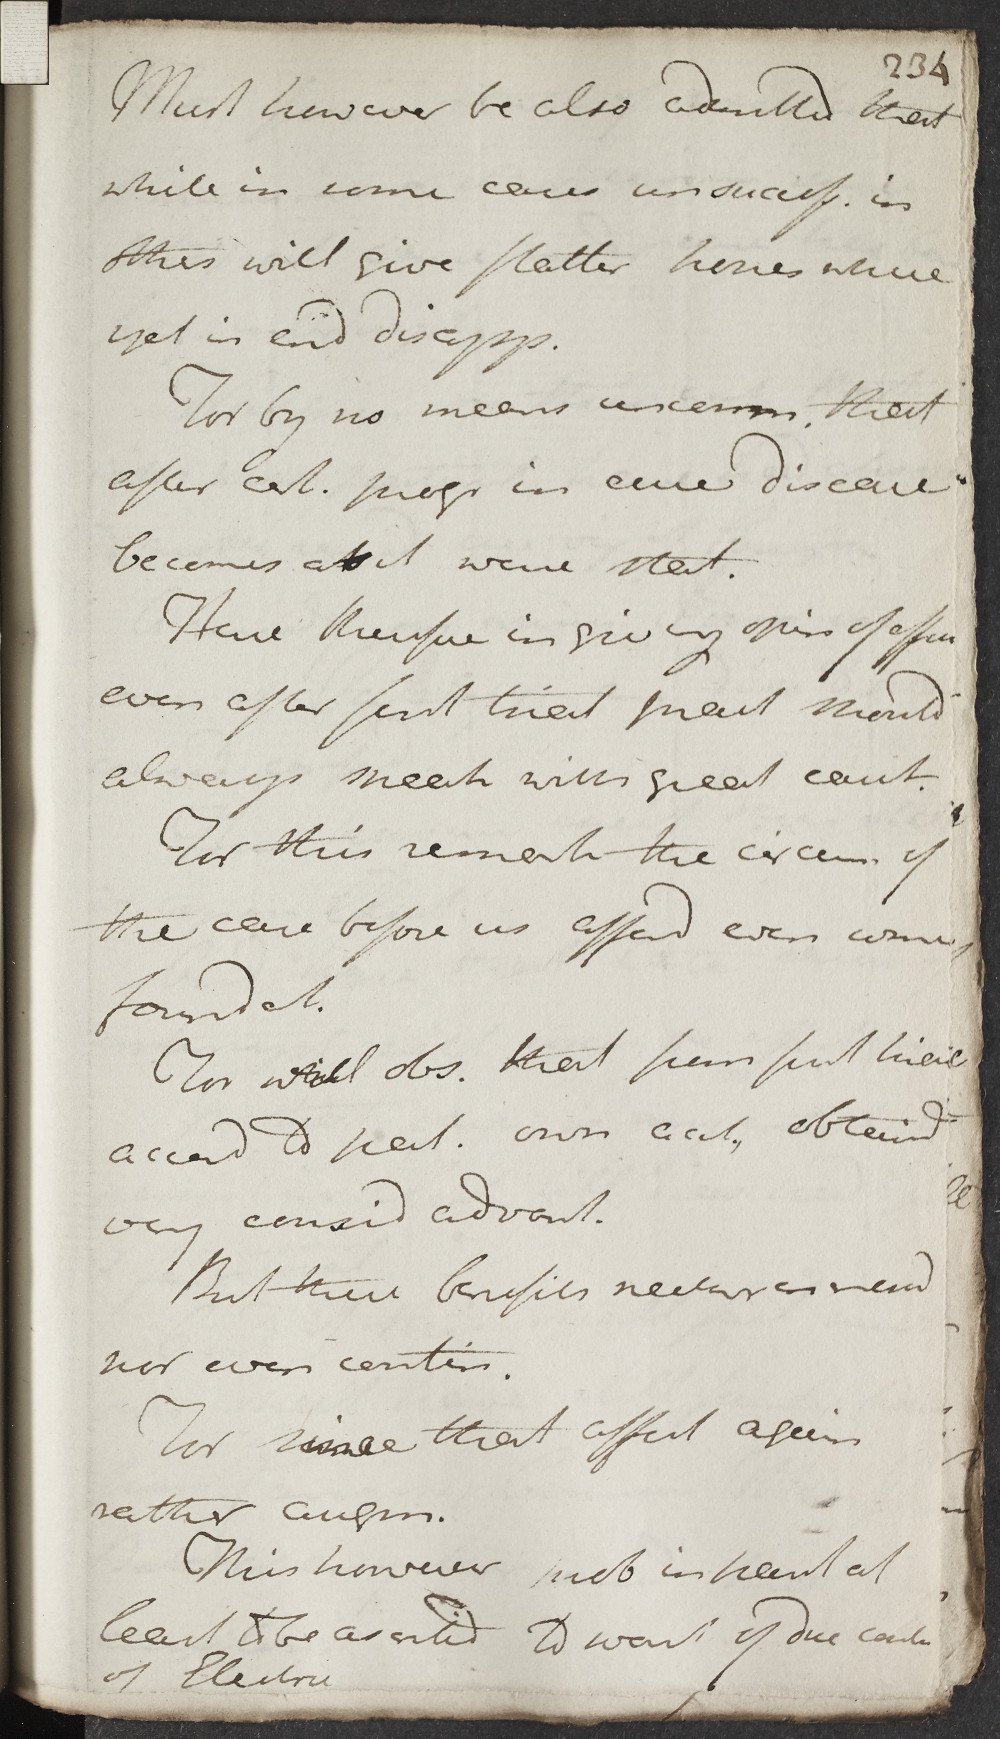 234
Must however be also admitted that
while in some cases unsuccessf. in
others will give flatter hopes where
yet in end disapp.
For by no means uncomm. that
after cert. progr in cure disease
becomes as it were stat.
Have therefore in giving opin of affect
even after first trial great should
always speak with great caut.
For this remark the circum. of
the case before us afford even some
foundat.
For will obs. that from first trial
accord to pat. own acct., obtaind
very consid advant.
But these benefits neither increasd
nor even contin.
For since that affect again
rather augm.
This however prob in part at
least to be ascribd to want of due caut
of Electric